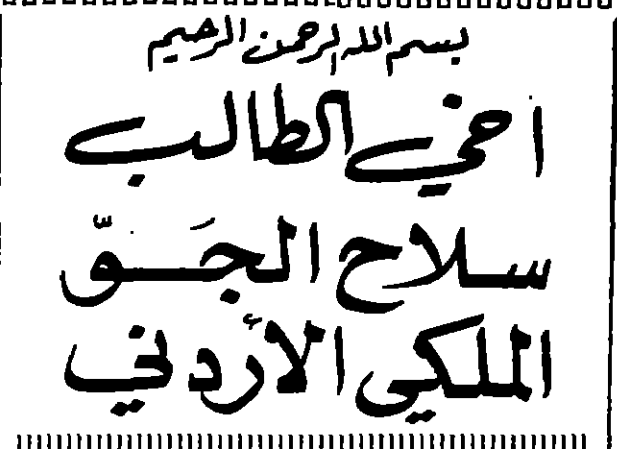 بسم الله الرحمن الرحيم
اخي الطالب
سلاح الجَوّ
الملكي الأردني